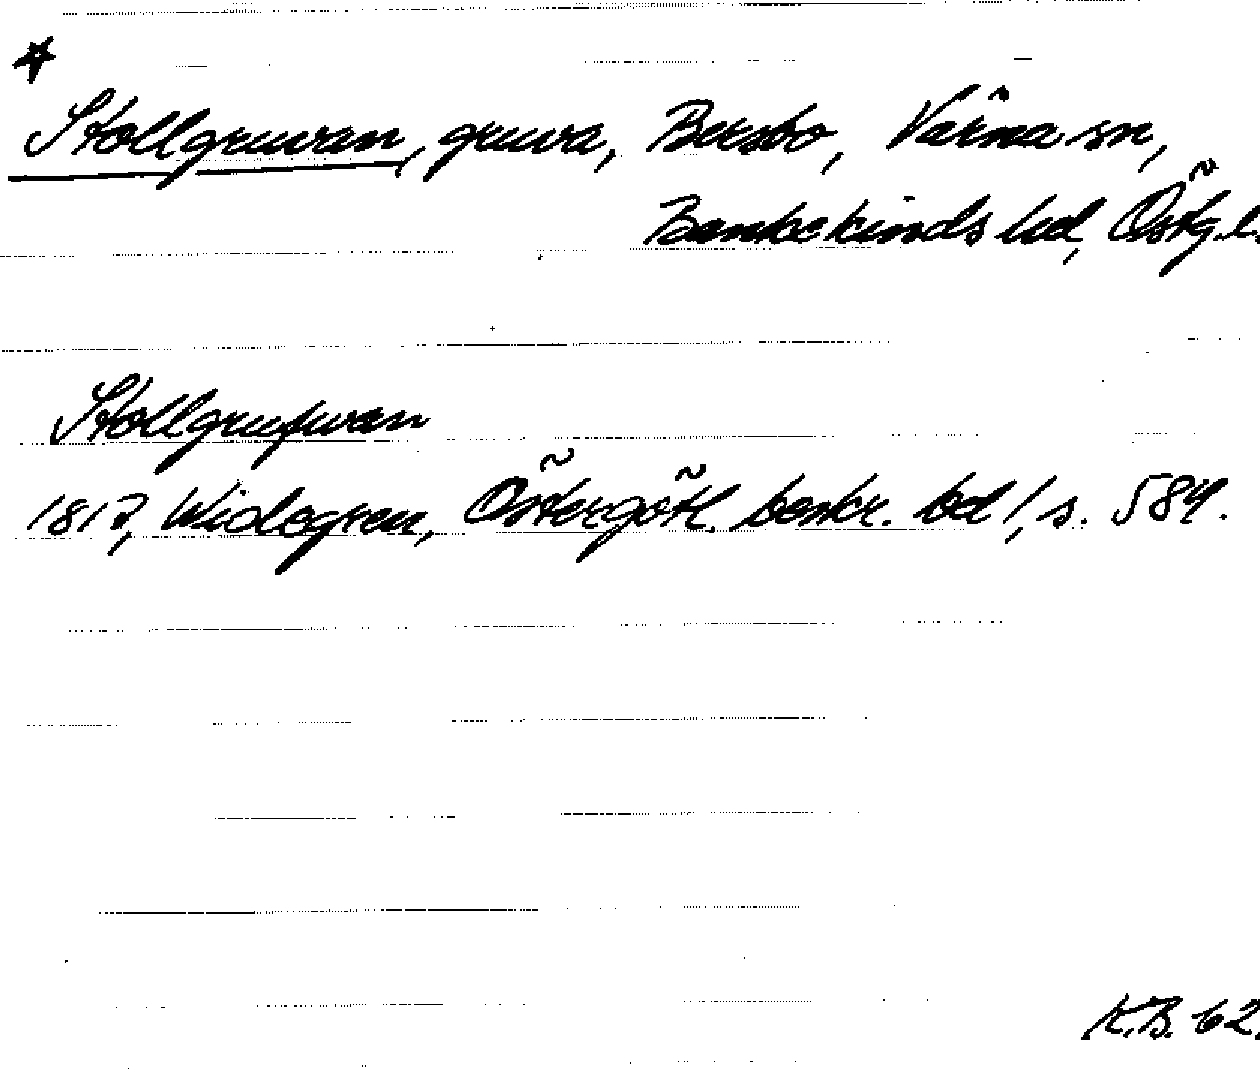 Stollgruvan, gruva, Bersbo, Värna sn,
Bankekinds hd, Östg.l.
Stollgrufwan
1817, Widegren, Östergötl. beskr. bd 1, s. 584.
K.B. 62.